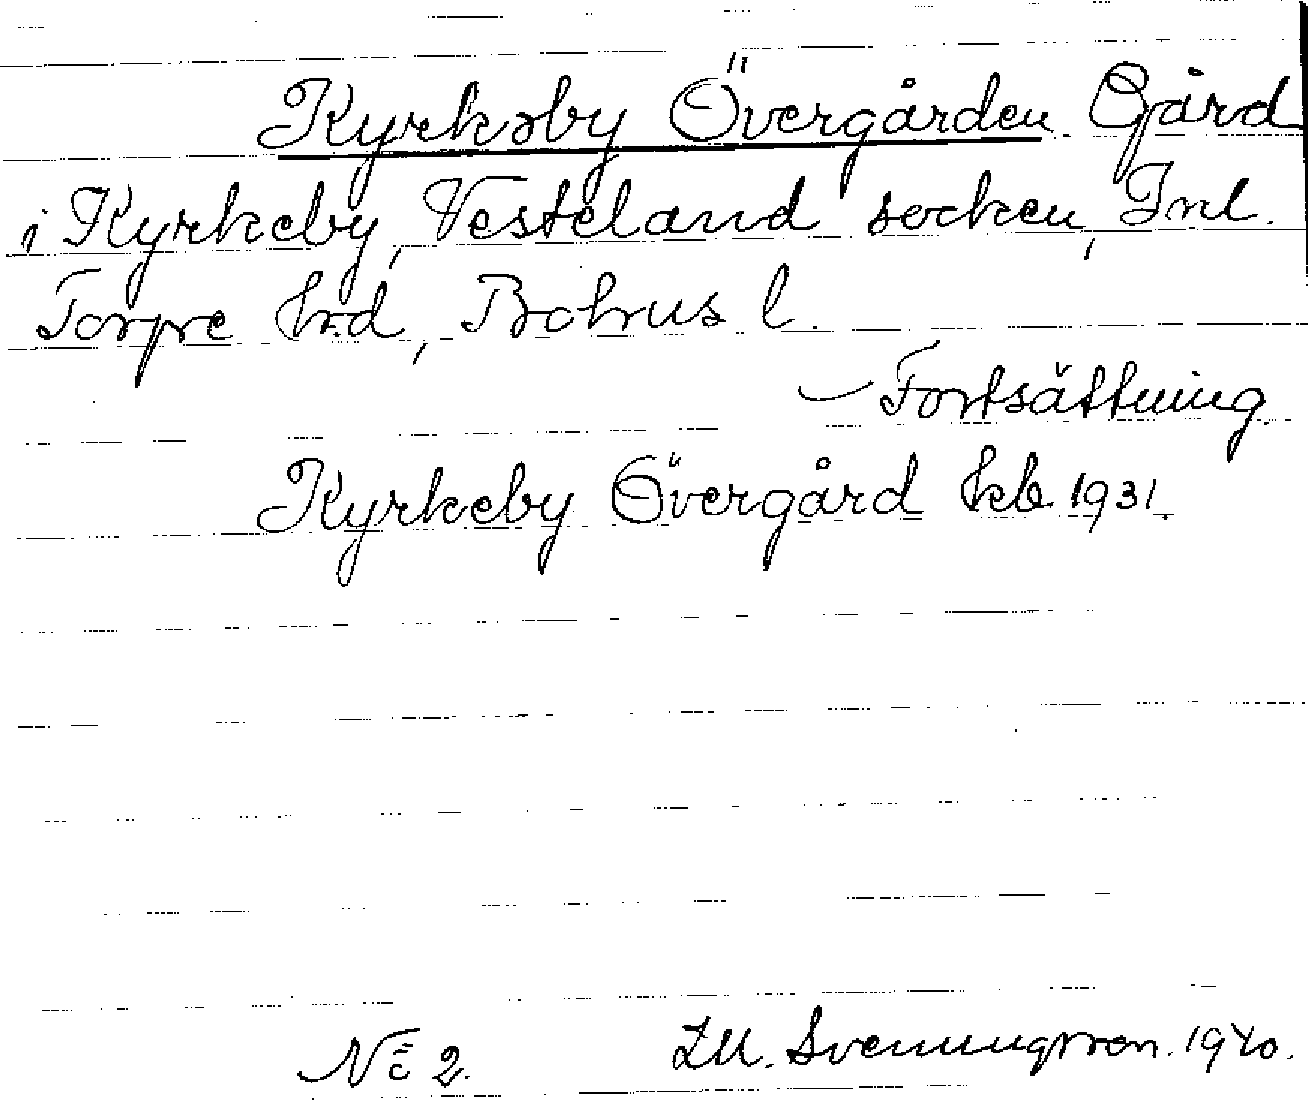 Kyrkeby Övergården Gård
i Kyrkeby, Vesteland socken, Inl.
Torpe hrd, Bohus l.
– Fortsättning
Kyrkeby Övergård kb. 1931.
No 2. Z.M. Svenungsson. 1940.